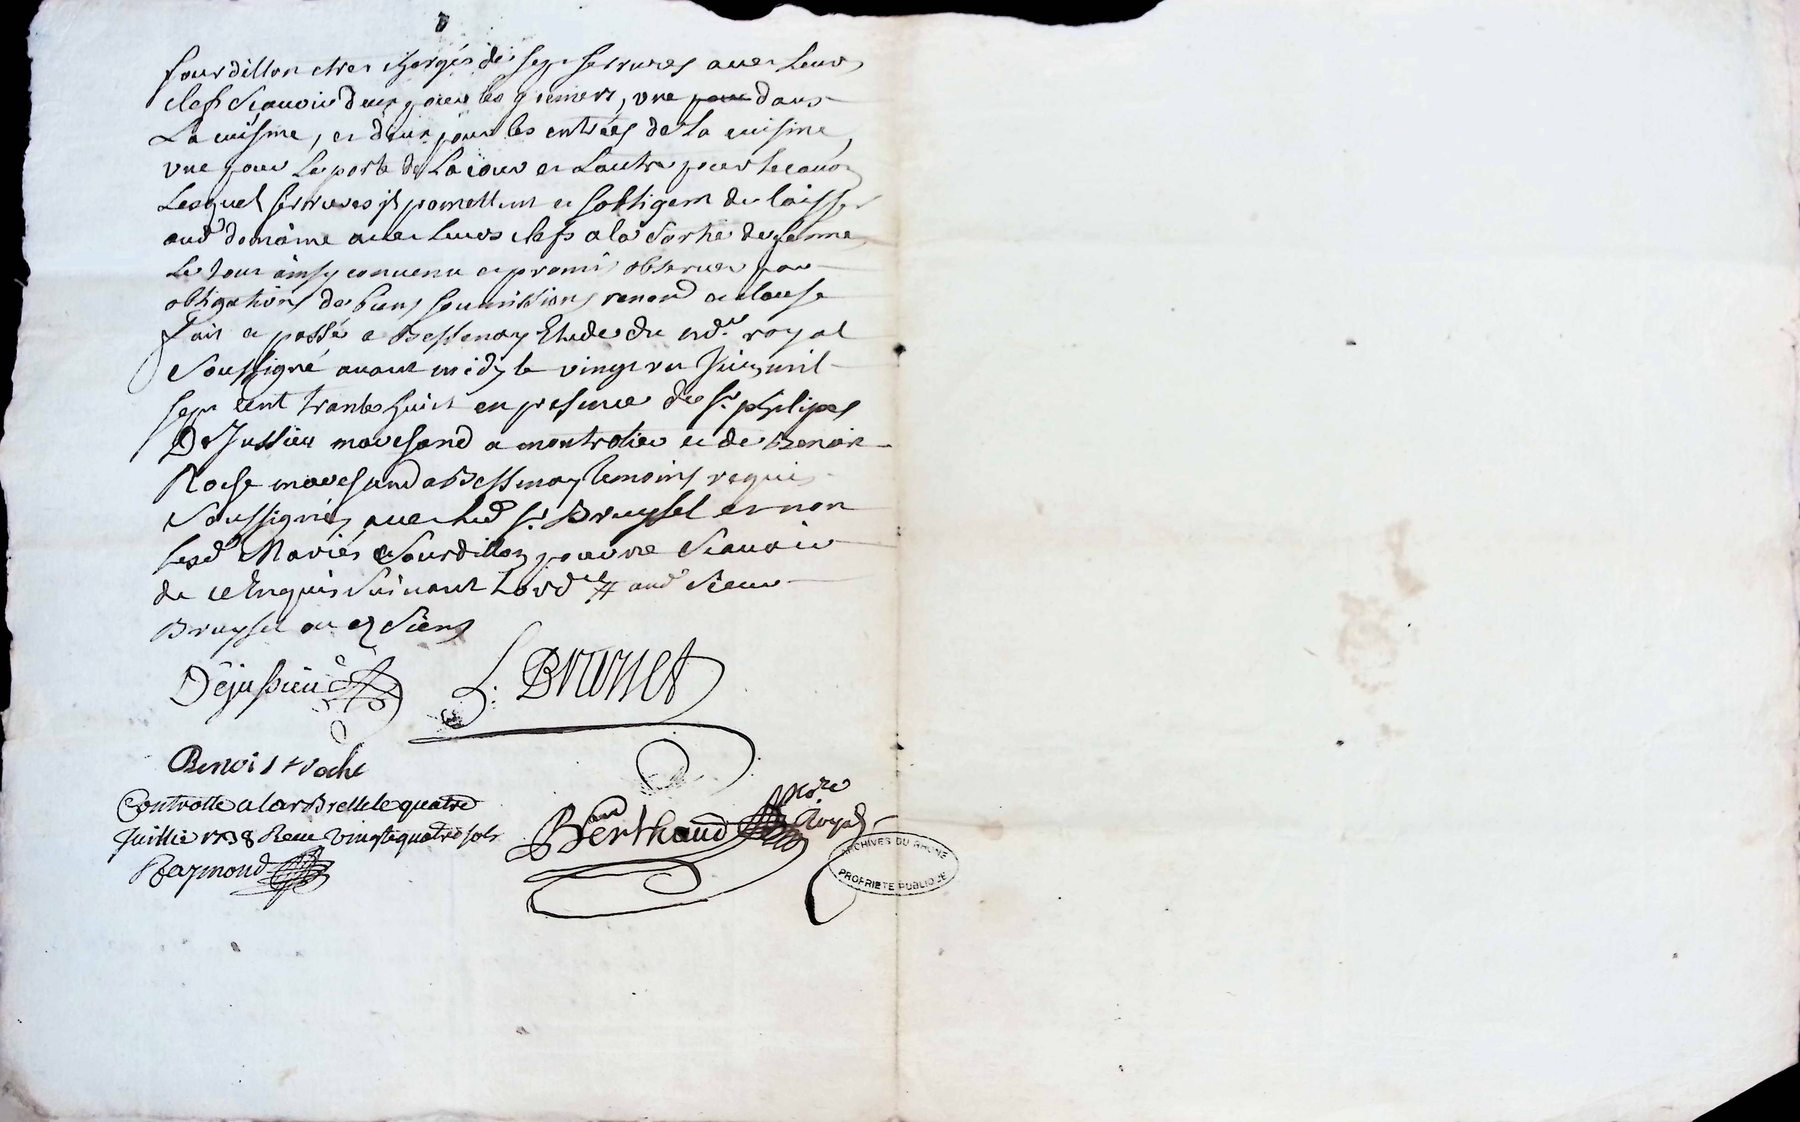 sourdillon etres chargés de sept serrures avec Leurs
clefs Scauoir deux pour les greniers, vne pour dans
La cuisine, et deux pour les entrées de La cuisine,
vne pour La porte de La cour et Lautre pour
Lesquel serrures jls promettent et sobligent de laisser
aud.' domaine auec Leurs clefs a la Sortie de ferme
Le tout ainsy conuenu et promis obseruer par
obligations de biens soumissions renon.' et clause
fait et passé a Bessenay Etude du no.re royal
Soussigné auant midy le vingt vn Juin mil
sept cent trante huict en presence de s.r philipes
DeJussieu marchand a montrotier et de Benoit
Roche marchand a Bessenay temoins requis
Soussignés auec led. s.r Bruyset et non
lesd. Mariés Sourdillon pour ne Scauoir
de ce Enquis Suiuant Lord.ce # aud. Sieur
Bruyset ou es Siens
Dejussieu L. Bruyset
Benoist roche
Controllé a larBrelle le quatre
Juillie 1738 Receu vingtequatre sols
Raymond
Berthaud no.re Royal
ARCHIVES DU RHÔNE
PROPRIETE PUBLIQUE